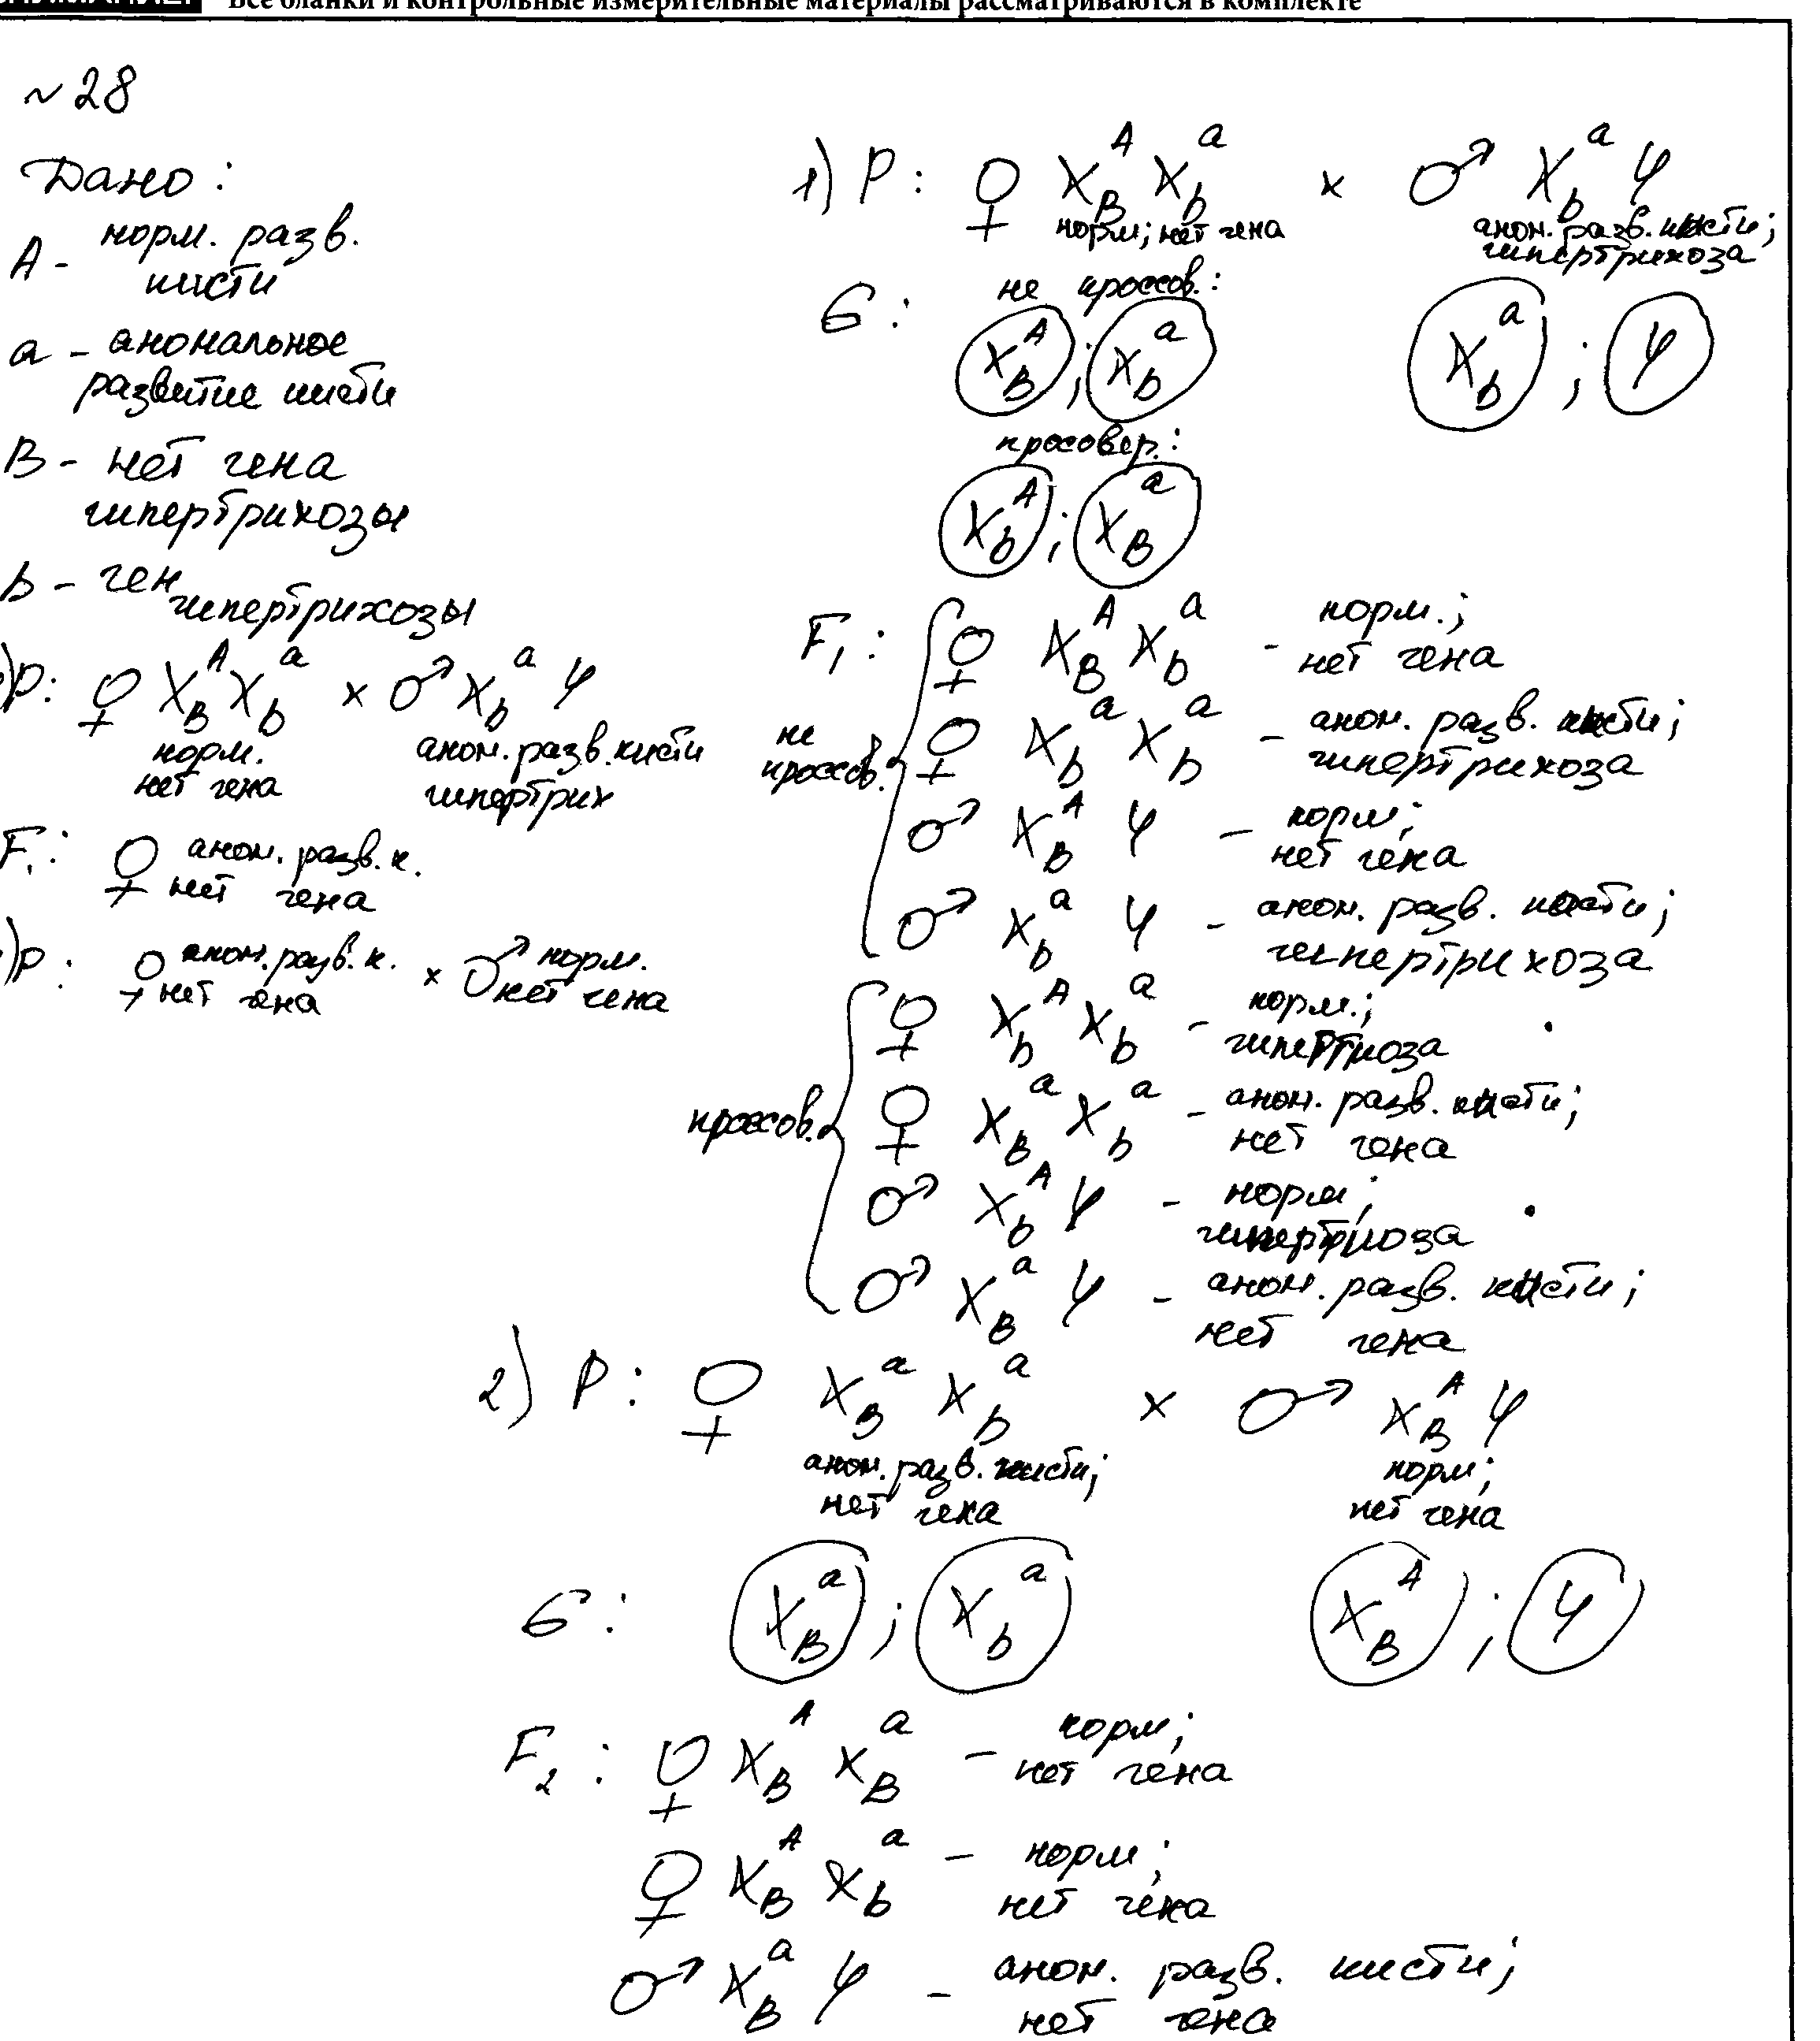 Все бланки и контрольные измерительные материалы рассматриваются в комплекте
~28
Дано:
А - норм. разв.
кисти
а - анональное
развитие кисти
В - нет гена
гипертрихозы
b - ген
гипертрихозы
)P: ♀ X_B^A X_b^a × ♂ X_b^a Y
норм. аном. разв. кисти
нет гена гипертрих
F₁: ♀ аном. разв. к.
нет гена
)P: ♀ аном. разв. к. × ♂ норм.
нет гена нет гена
1) P: ♀ X_B^A X_b^a × ♂ X_b^a Y
норм; нет гена аном. разв. кисти;
гипертрихоза
не кроссов.:
G: X_B^A ; X_b^a X_b^a ; Y
кроссовер.:
X_b^A ; X_B^a
F₁: ♀ X_B^A X_b^a - норм.;
нет гена
не ♀ X_b^a X_b^a - аном. разв. кисти;
кроссов. гипертрихоза
♂ X_B^A Y - норм;
нет гена
♂ X_b^a Y - аном. разв. кисти;
гипертрихоза
♀ X_b^A X_b^a - норм.;
гипертриоза
кроссов. ♀ X_B^a X_b^a - аном. разв. кисти;
нет гена
♂ X_b^A Y - норм;
гипертриоза
♂ X_B^a Y - аном. разв. кисти;
нет гена
2) P: ♀ X_B^a X_b^a × ♂ X_B^A Y
аном. разв. кисти; норм;
нет гена нет гена
G: X_B^a ; X_b^a X_B^A ; Y
F₂: ♀ X_B^A X_B^a - норм;
нет гена
♀ X_B^A X_b^a - норм;
нет гена
♂ X_B^a Y - аном. разв. кисти;
нет гена